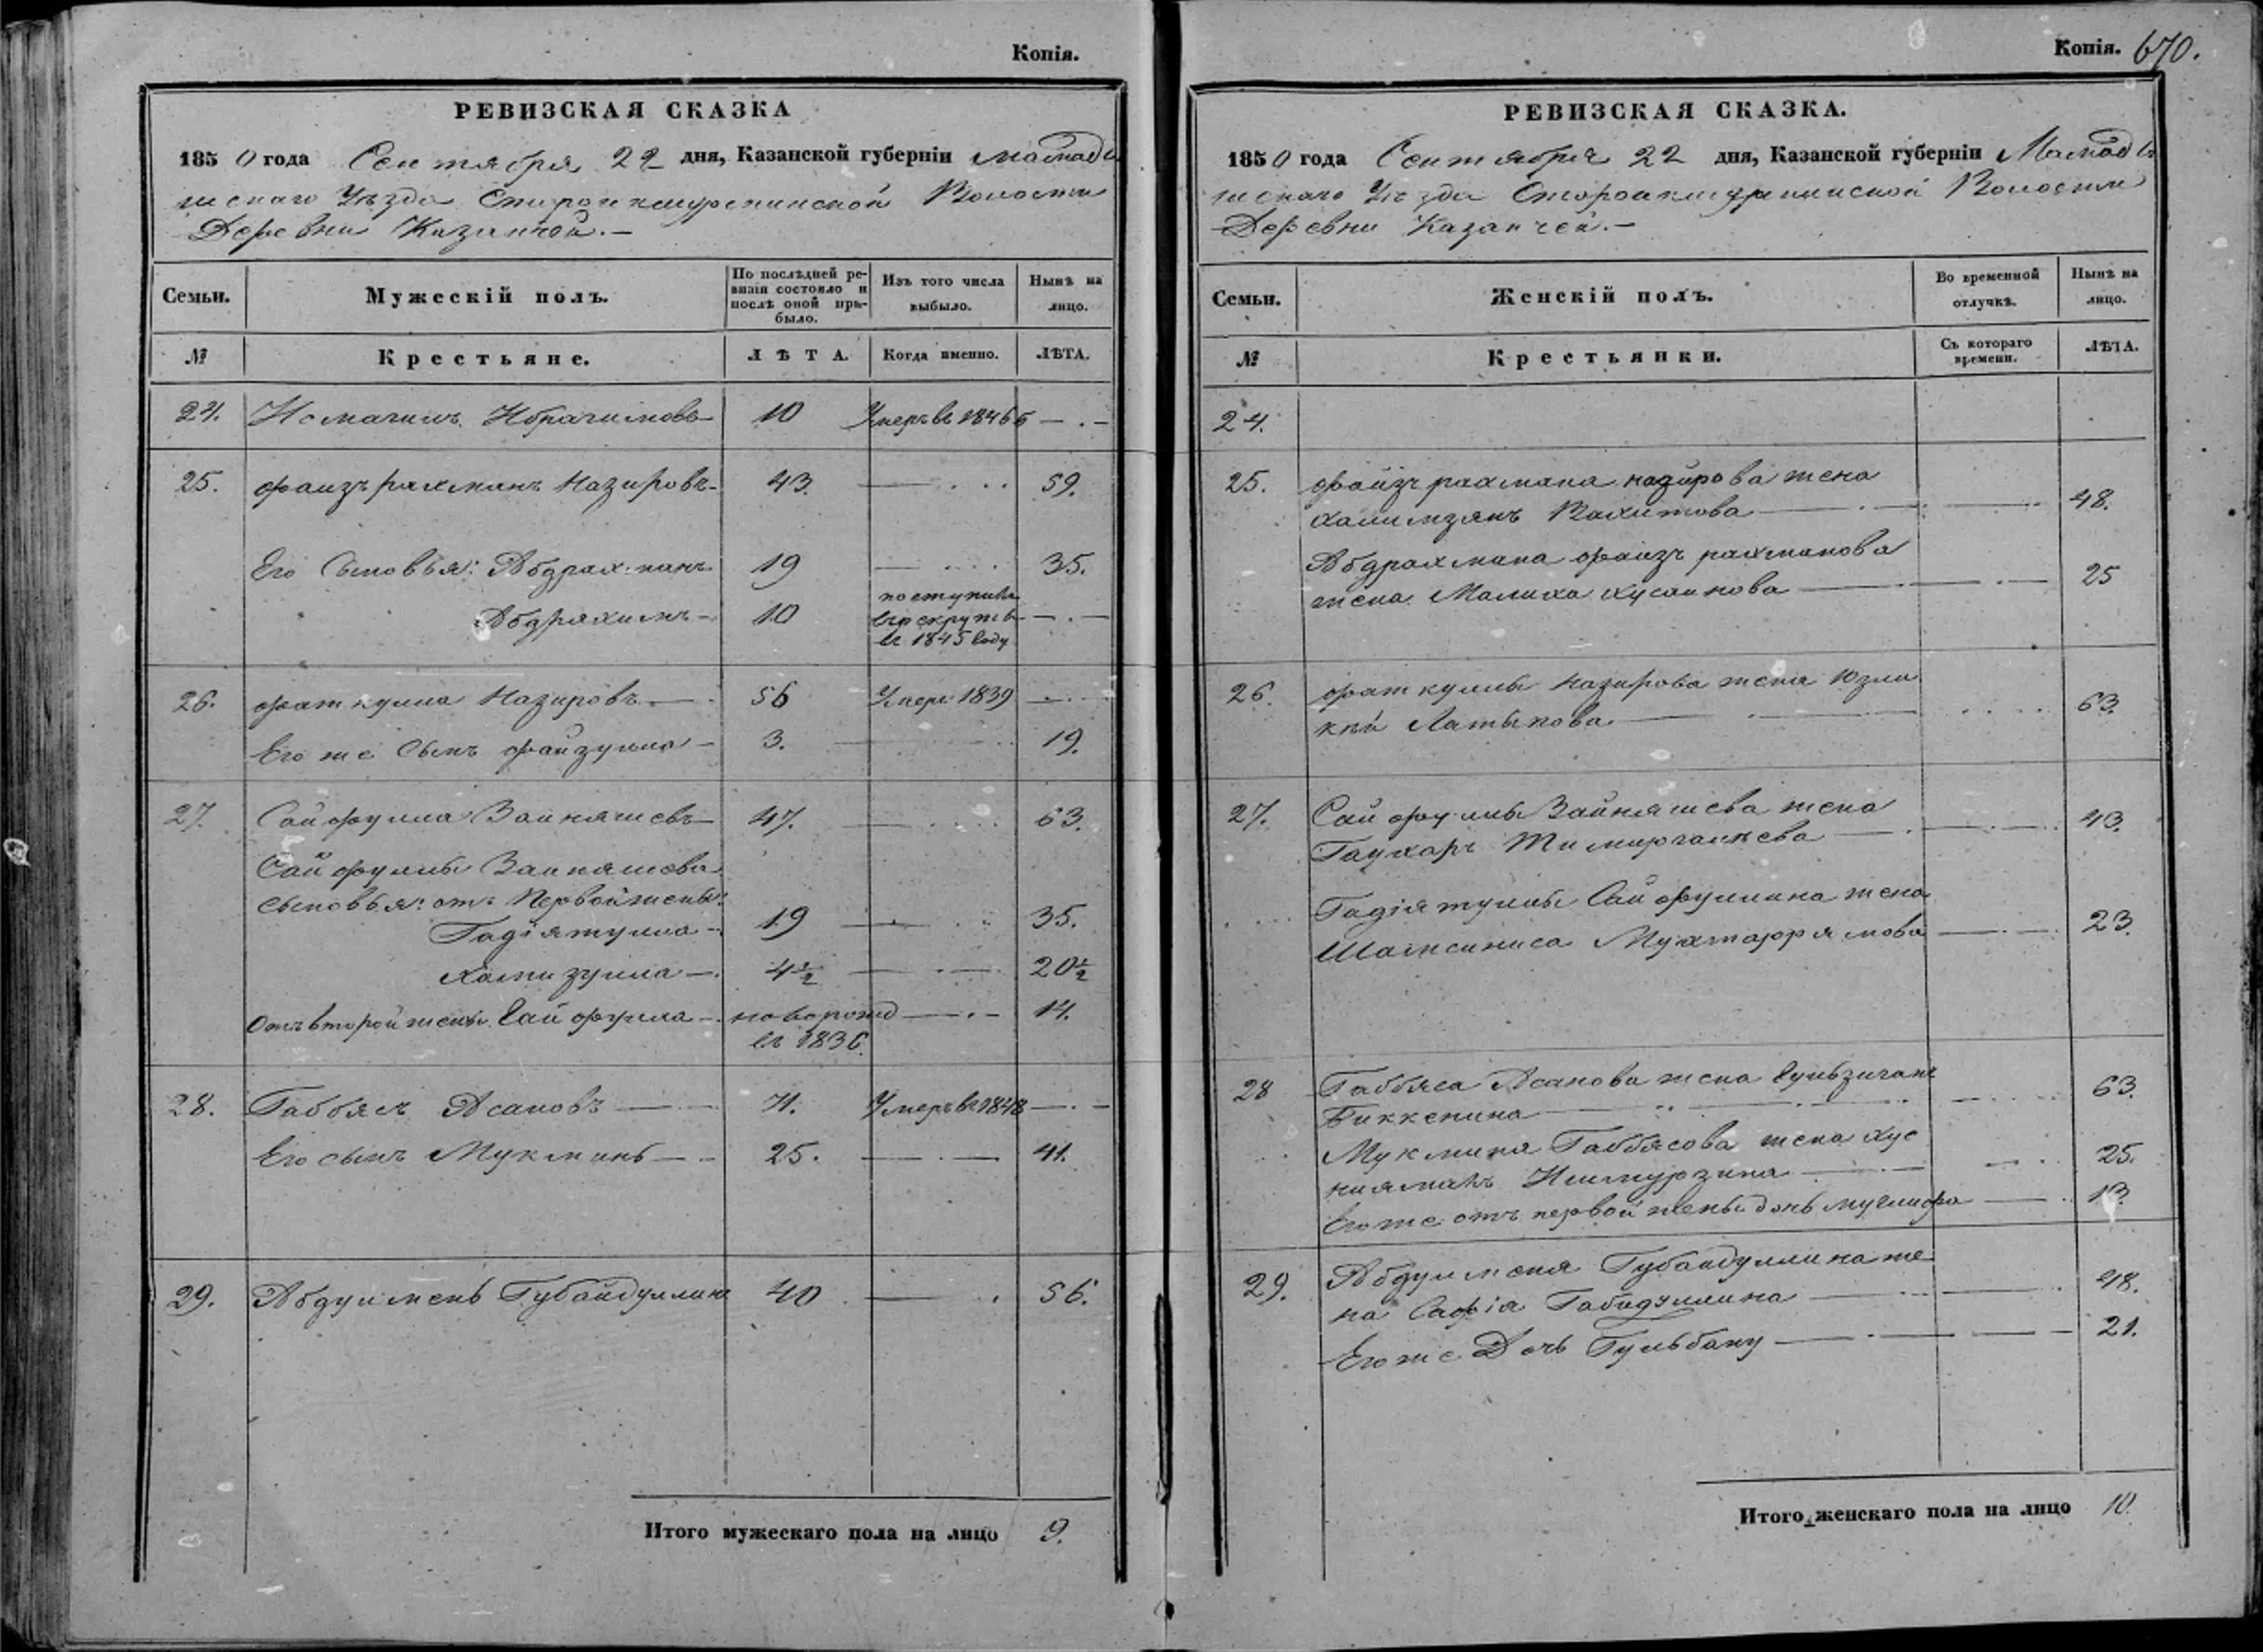 Копія.
РЕВИЗСКАЯ СКАЗКА
1850 года Сентября 22 дня, Казанской губерніи Мамады
шскаго Уѣзда Волости
Деревни Казанчей.—
Семьи.
Мужескій полъ.
По послѣдней ре-
визіи состояло и
послѣ оной при-
было.
Изъ того числа
выбыло.
Нынѣ на
лицо.
№
Крестьяне.
ЛѢТА.
Когда именно.
ЛѢТА.
24. Исмагилъ Ибрагимовъ 10 Умеръ въ 1846 — . —
25. Фаизъ рахманъ Назировъ 43. — 59.
Его Сыновья: Абдрахманъ 19 — 35.
поступилъ
Абдряхимъ — 10 — . —
въ 1845 году
26. Фаткулла Назировъ — 56 Умеръ 1839 — .
Его же Сынъ Файзулла — 3. — 19.
27. Сайфулла Зайняшевъ 47. — 63.
Сайфуллы Зайняшева
сыновья: отъ Первой жены:
Гадіятулла — 19 — 35.
Хамизулла — 4½ — 20½
Отъ второй жены Сайфулла — новорожд — . — 14.
въ 1836.
28. Габбясъ Асановъ — 71. Умеръ въ 1848 — . —
Его сынъ Мукминъ — 25. — . — 41.
29. Абдулменъ Губайдуллинъ 40 — . 56.
Итого мужескаго пола на лицо 9.
Копія. 670.
РЕВИЗСКАЯ СКАЗКА.
1850 года Сентября 22 дня, Казанской губерніи Мамады
шскаго Уѣзда Волости
Деревни Казанчей.—
Семьи.
Женскій полъ.
Во временной
отлучкѣ.
Нынѣ на
лицо.
№
Крестьянки.
Съ котораго
времени.
ЛѢТА.
24.
25. Файзъ рахмана назирова жена
Халимзянъ Вахитова — 48.
Абдрахмана Фаизъ рахманова
жена Малиха Хусаинова — 25
26. Фаткуллы Назирова жена Юзли
кяй Латыпова — 63.
27. Сайфуллы Зайняшева жена
Гаухаръ Тимиргалѣева — 43.
Гадіятуллы Сайфуллина жена
Шамсиниса — 23.
28 Габбяса Асанова жена
Биккенина — 63.
Мукмина Габбясова жена Хус
ниямалъ Ишмурзина — 25.
Его же отъ первой жены дочь — 13.
29. Абдулменя Губайдуллина же
на Сафія Габидуллина — 48.
Его же Дочь Гульбану — 21.
Итого женскаго пола на лицо 10.